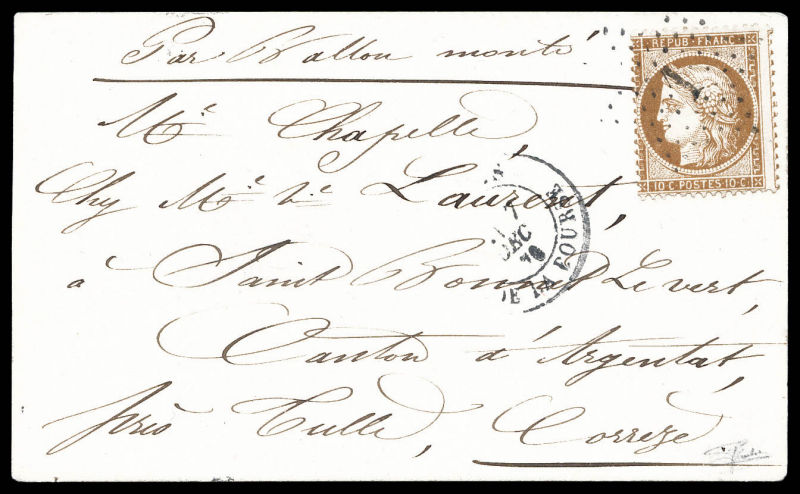 Par Ballon monté
REPUB. FRANC.
1
10 C. POSTES 10 C.
Mr. Chapelle,
Chez Mr. Ve. Laurent,
7
DEC
70
DE LA BOURSE
à Saint Bonnet Levert,
Canton d'Argentat,
près Tulle, Corrèze